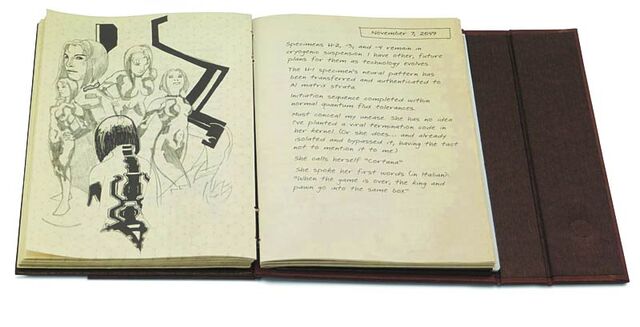 November 7, 2549
Specimens H-2, -3, and -4 remain in
cryogenic suspension. I have other, future
plans for them as technology evolves.
The H-1 specimen's neural pattern has
been transferred and authenticated to
AI matrix strata.
Initiation sequence completed within
normal quantum flux tolerances.
Must conceal my unease. She has no idea
I've planted a viral termination code in
her kernel. (Or she does... and already
isolated and bypassed it, having the tact
not to mention it to me.)
She calls herself "Cortana"
She spoke her first words (in Italian):
"When the game is over, the king and
pawn go into the same box"